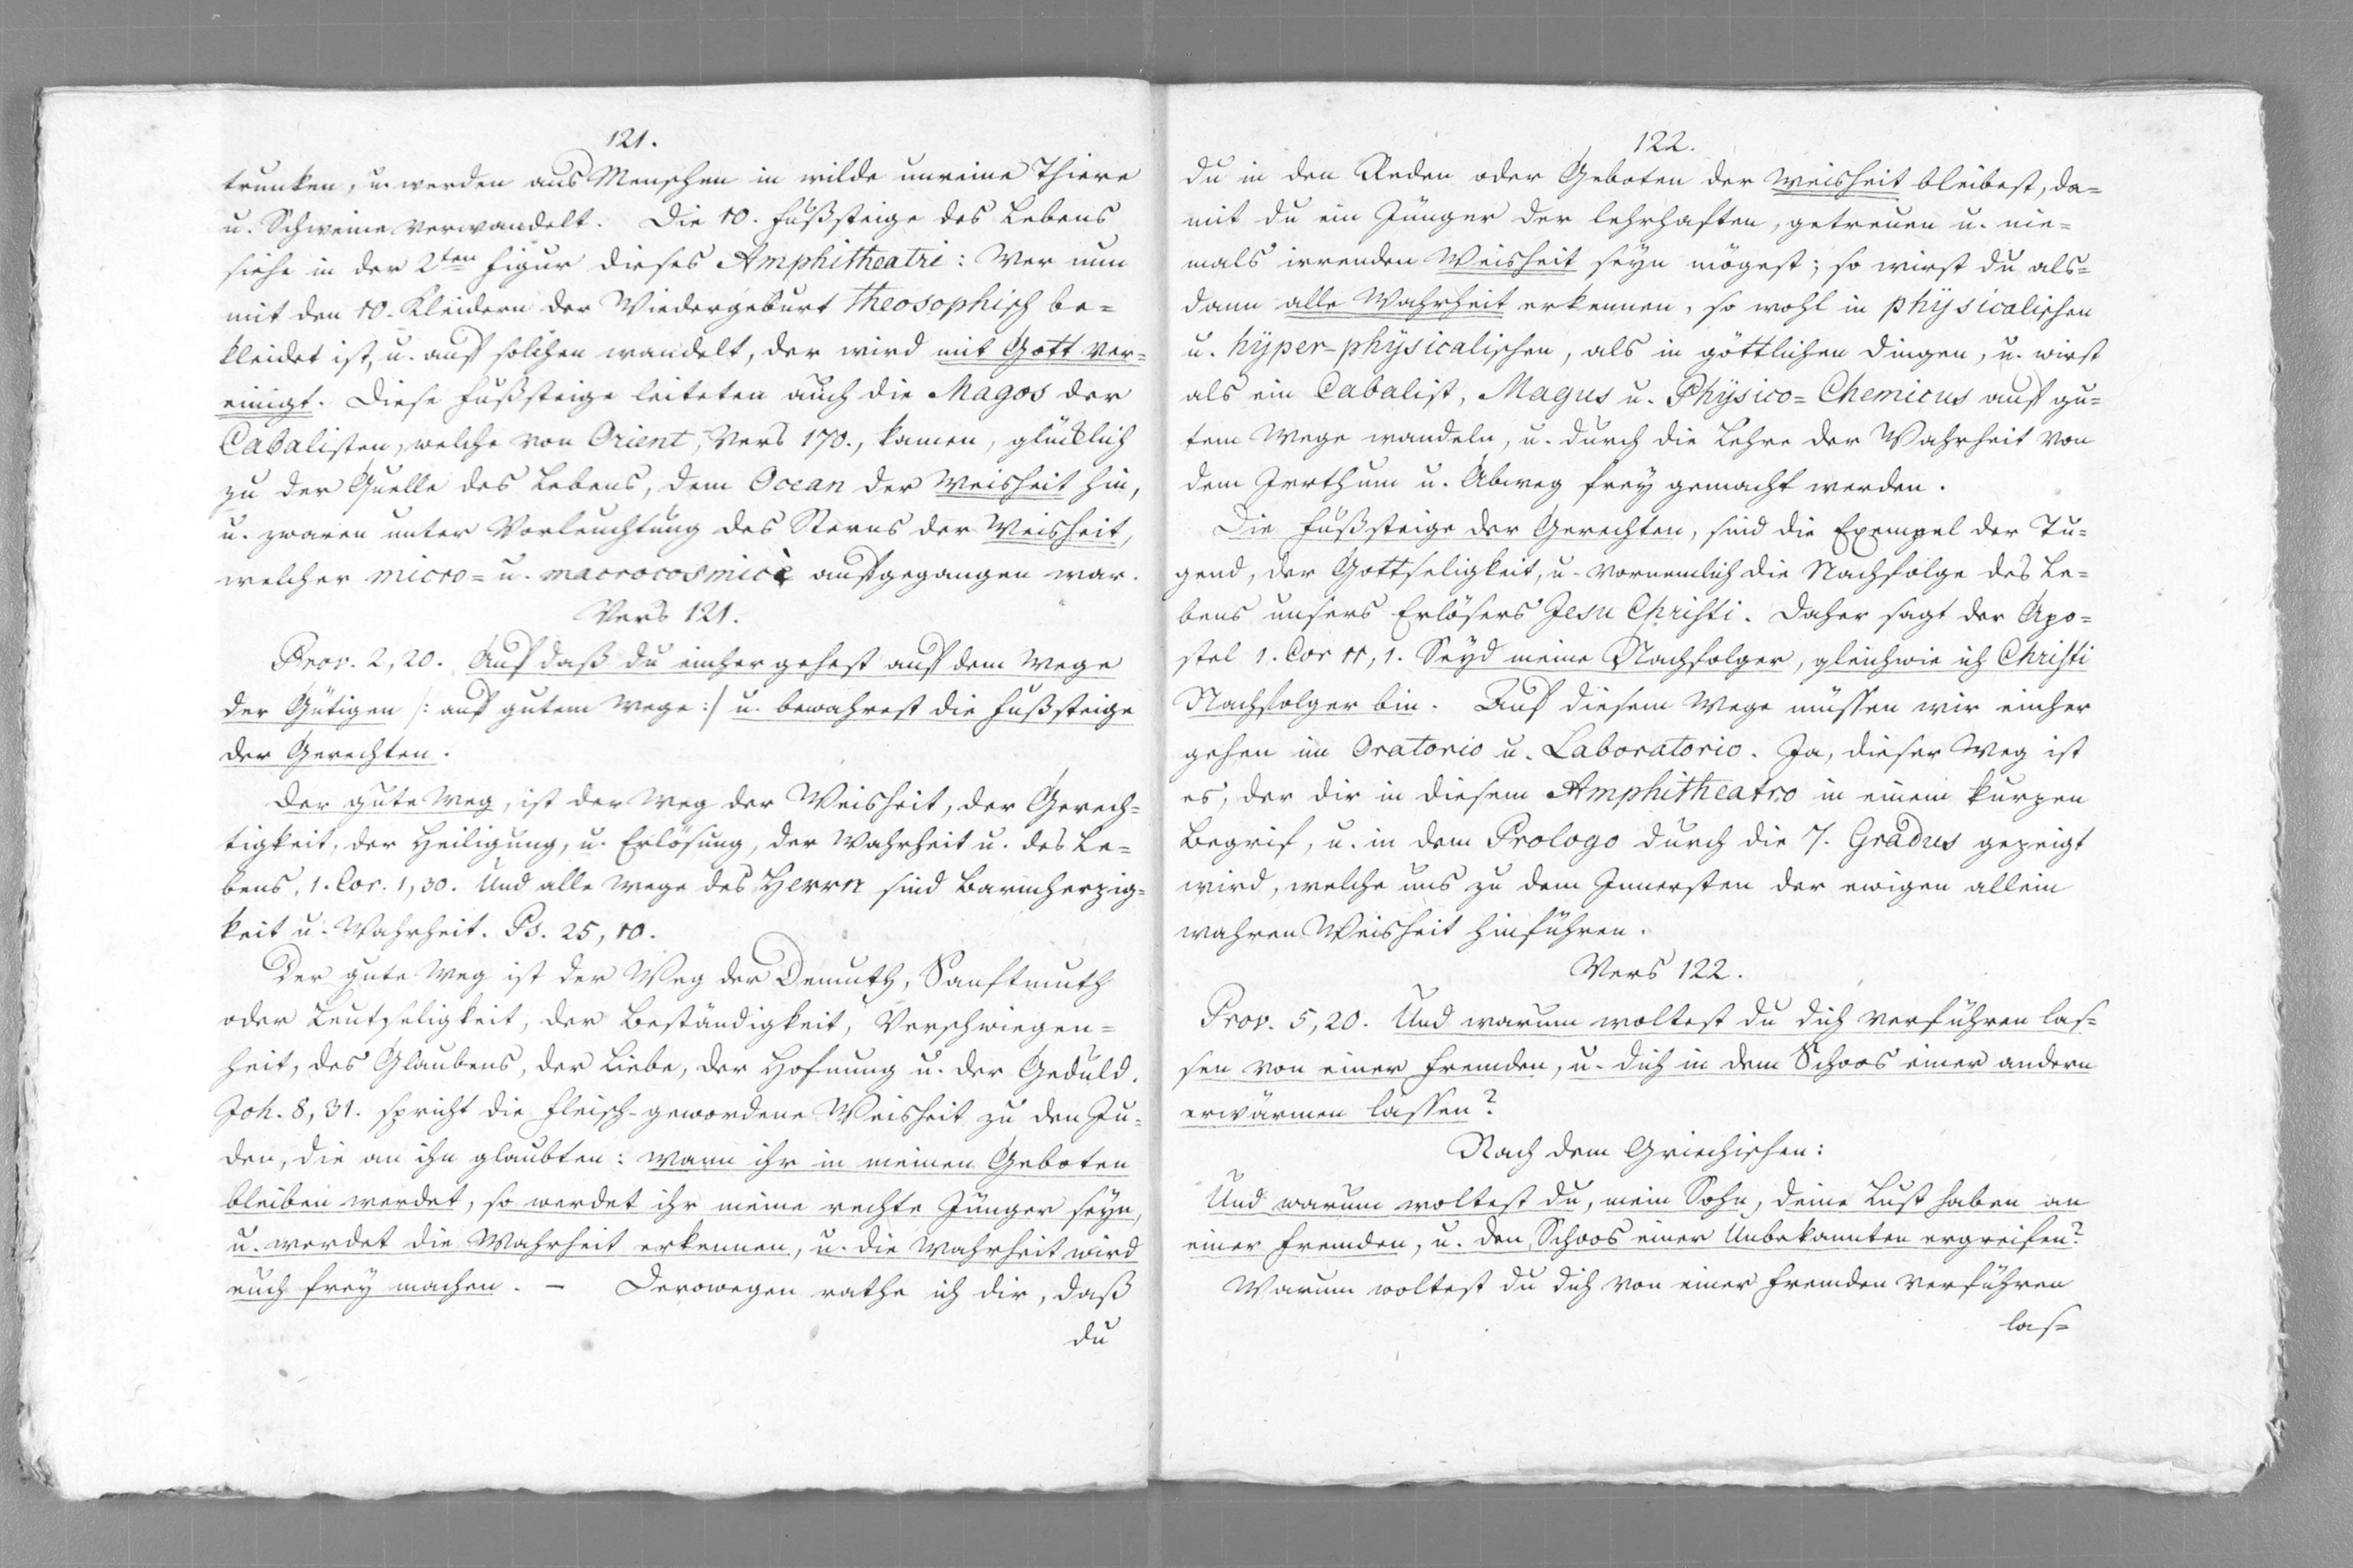 121.
trunken, u. werden aus Menschen in wilde unreine Thiere
u. Schweine verwandelt. Die 10. Fußsteige des Lebens
siehe in der 2ten Figur dieses Amphitheatri: Wer nun
mit den 10. Kleidern der Wiedergeburt theosophisch be=
kleidet ist, u. auf solchen wandelt, der wird mit Gott ver=
einigt. Diese Fußsteige leiteten auch die Magos der
Cabalisten, welche von Orient, Vers 170., kamen, glücklich
zu der Quelle des Lebens, dem Ocean der Weisheit hin,
u. zwaren unter Vorleuchtung des Sterns der Weisheit,
welcher micro= u. macrocosmicè aufgegangen war.
Vers 121.
Prov. 2, 20. Auf daß du einher gehest auf dem Wege
der Gütigen /: auf gutem Wege :/ u. bewahrest die Fußsteige
der Gerechten.
Der gute Weg, ist der Weg der Weisheit, der Gerech=
tigkeit, der Heiligung, u. Erlösung, der Wahrheit u. des Le=
bens, 1. Cor. 1, 30. Und alle Wege des Herrn sind Barmherzig=
keit u. Wahrheit. Ps. 25, 10.
Der gute Weg ist der Weg der Demuth, Sanftmuth
oder Leutseligkeit, der Beständigkeit, Verschwiegen=
heit, des Glaubens, der Liebe, der Hofnung u. der Geduld.
Joh. 8, 31. spricht die Fleisch-gewordene Weisheit zu den Ju=
den, die an ihn glaubten: wann ihr in meinen Geboten
bleiben werdet, so werdet ihr meine rechte Jünger seyn,
u. werdet die Wahrheit erkennen, u. die Wahrheit wird
euch frey machen. – Derowegen rathe ich dir, daß
du
122.
du in den Reden oder Geboten der Weisheit bleibest, da=
mit du ein Jünger der lehrhaften, getreuen u. nie=
mals irrenden Weisheit seyn mögest; so wirst du als=
dann alle Wahrheit erkennen, so wohl in physicalischen
u. hyper-physicalischen, als in göttlichen Dingen, u. wirst
als ein Cabalist, Magus u. Physico=Chemicus auf gu=
tem Wege wandeln, u. durch die Lehre der Wahrheit von
dem Irrthum u. Abweg frey gemacht werden.
Die Fußsteige der Gerechten, sind die Exempel der Tu=
gend, der Gottseligkeit, u. vornemlich die Nachfolge des Le=
bens unsers Erlösers Jesu Christi. Daher sagt der Apo=
stel 1. Cor 11, 1. Seyd meine Nachfolger, gleichwie ich Christi
Nachfolger bin. Auf diesem Wege müssen wir einher
gehen im Oratorio u. Laboratorio. Ja, dieser Weg ist
es, der dir in diesem Amphitheatro in einem kurzen
Begrif, u. in dem Prologo durch die 7. Gradus gezeigt
wird, welche uns zu dem Innersten der ewigen allein
wahren Weisheit hinführen.
Vers 122.
Prov. 5, 20. Und warum woltest du dich verführen las=
sen von einer Fremden, u. dich in dem Schoos einer andern
erwärmen lassen?
Nach dem Griechischen:
Und warum woltest du, mein Sohn, deine Lust haben an
einer Fremden, u. den Schoos einer Unbekannten ergreifen?
Warum woltest du dich von einer Fremden verführen
las=